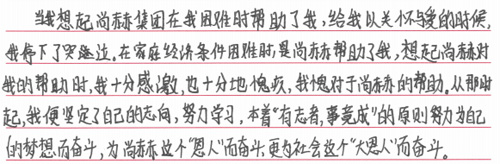 当我想起尚赫集团在我困难时帮助了我,给我以关怀与爱的时候,
我停下了哭继泣。在家庭经济条件困难时,是尚赫帮助了我,想起尚赫对
我的帮助时,我十分感激,也十分地愧疚,我愧对于尚赫的帮助。从那时
起,我便坚定了自己的志向,努力学习,本着“有志者,事竟成”的原则努力为自己
的梦想而奋斗,为尚赫这个“恩人”而奋斗,更为社会这个“大恩人”而奋斗。